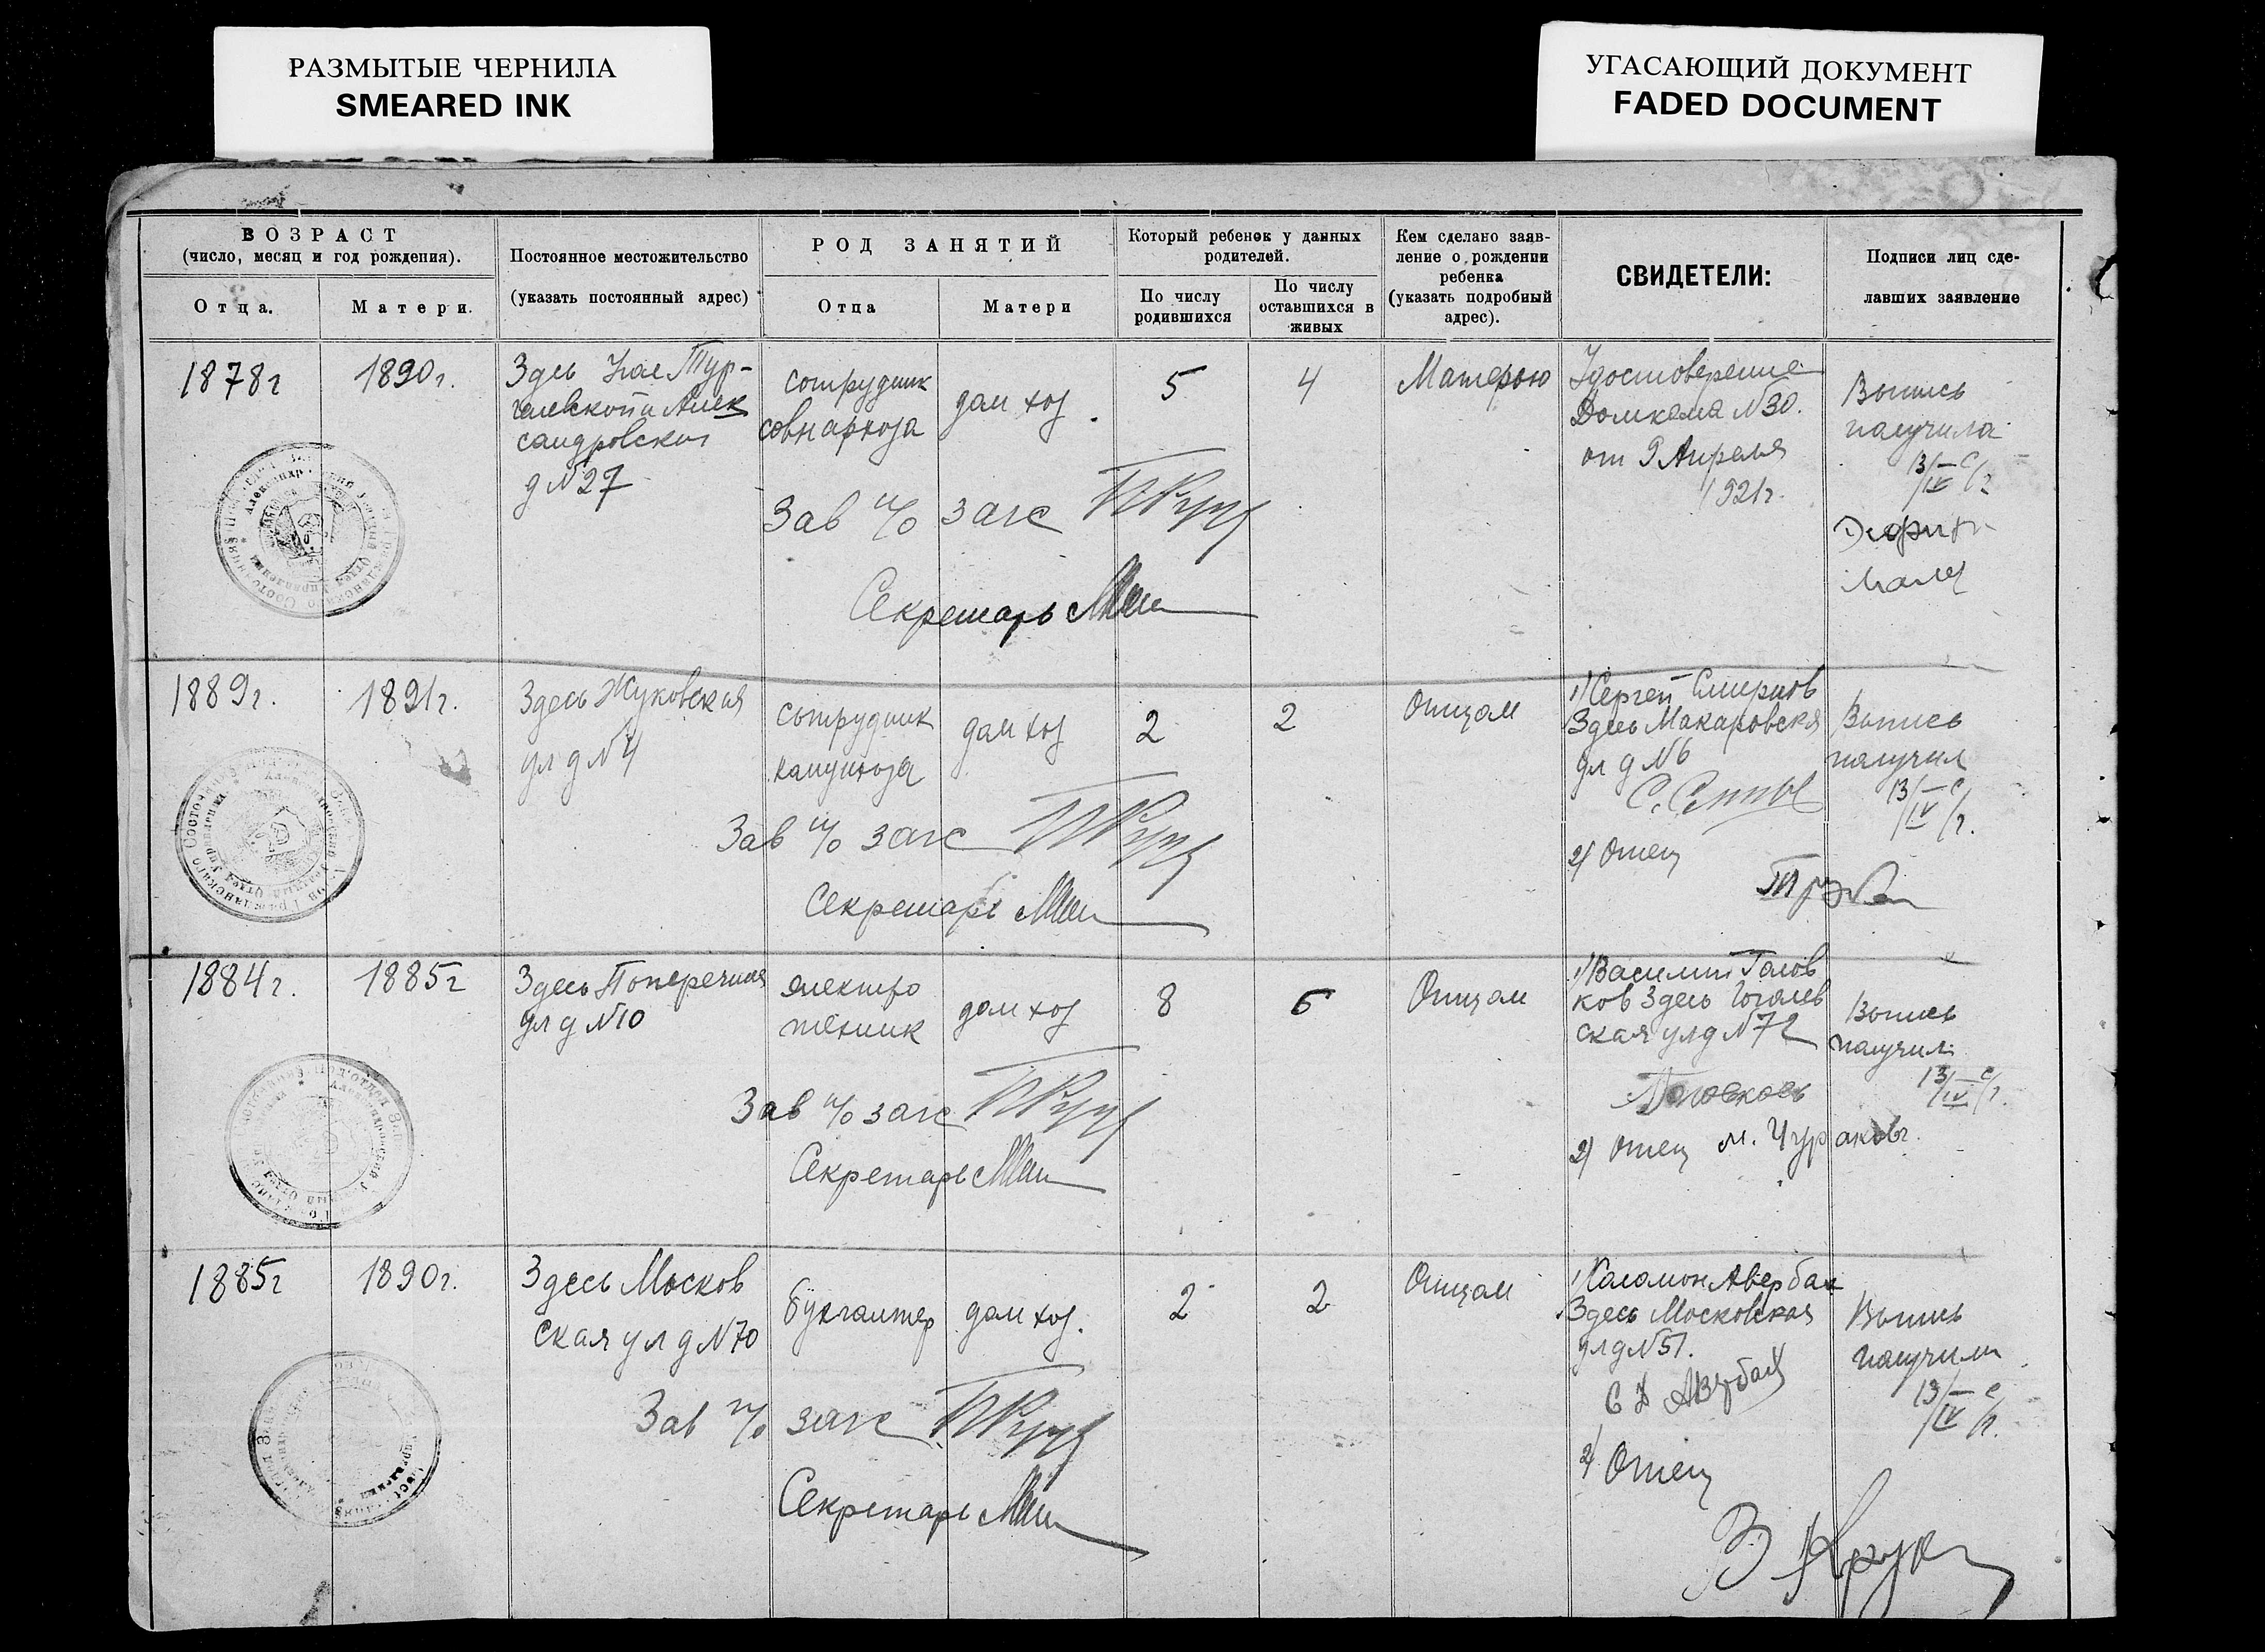 РАЗМЫТЫЕ ЧЕРНИЛА
SMEARED INK
УГАСАЮЩИЙ ДОКУМЕНТ
FADED DOCUMENT
ВОЗРАСТ
(число, месяц и год рождения).
Отца.
Матери.
Постоянное местожительство
(указать постоянный адрес)
РОД ЗАНЯТИЙ
Отца
Матери
Который ребенок у данных
родителей.
По числу
родившихся
По числу
оставшихся в
живых
Кем сделано заяв-
ление о рождении
ребенка
(указать подробный
адрес).
СВИДЕТЕЛИ:
Подписи лиц сде-
лавших заявление
1878г
1890г.
Здесь Тур-
саидровской
д №27
сотрудник
совнархоза
дом хоз.
5
4
Матерью
Удостоверение
Домкома №30.
от 9 Апреля
1921г.
Выпись
получила
13/IV с/г
Зав п/о загс
Секретарь
1889г.
1891г.
Здесь Жуковская
ул д №4
сотрудник
дом хоз
2
2
Отцом
1) Сергей Смирнов
Здесь Макаровская
ул д №6
2) Отец
Выпись
получил
13/IV с/г.
Зав п/о загс
Секретарь
1884г.
1885г
Здесь Поперечная
ул д №10
электро
техник
дом хоз
8
6
Отцом
1) Василий Голов
ков Здесь Гоголев
ская ул д №72
Головковъ
2) Отец М. Чураковъ.
Выпись
получил
13/IV с/г.
Зав п/о загс
Секретарь
1885г
1890г.
Здесь Москов
ская ул д №70
бухгалтер
дом хоз.
2
2
Отцом
1) Соломон Авербах
Здесь Московская
ул д №51.
С Авербах
2) Отец
Выпись
получил
13/IV с/г.
Зав п/о загс
Секретарь